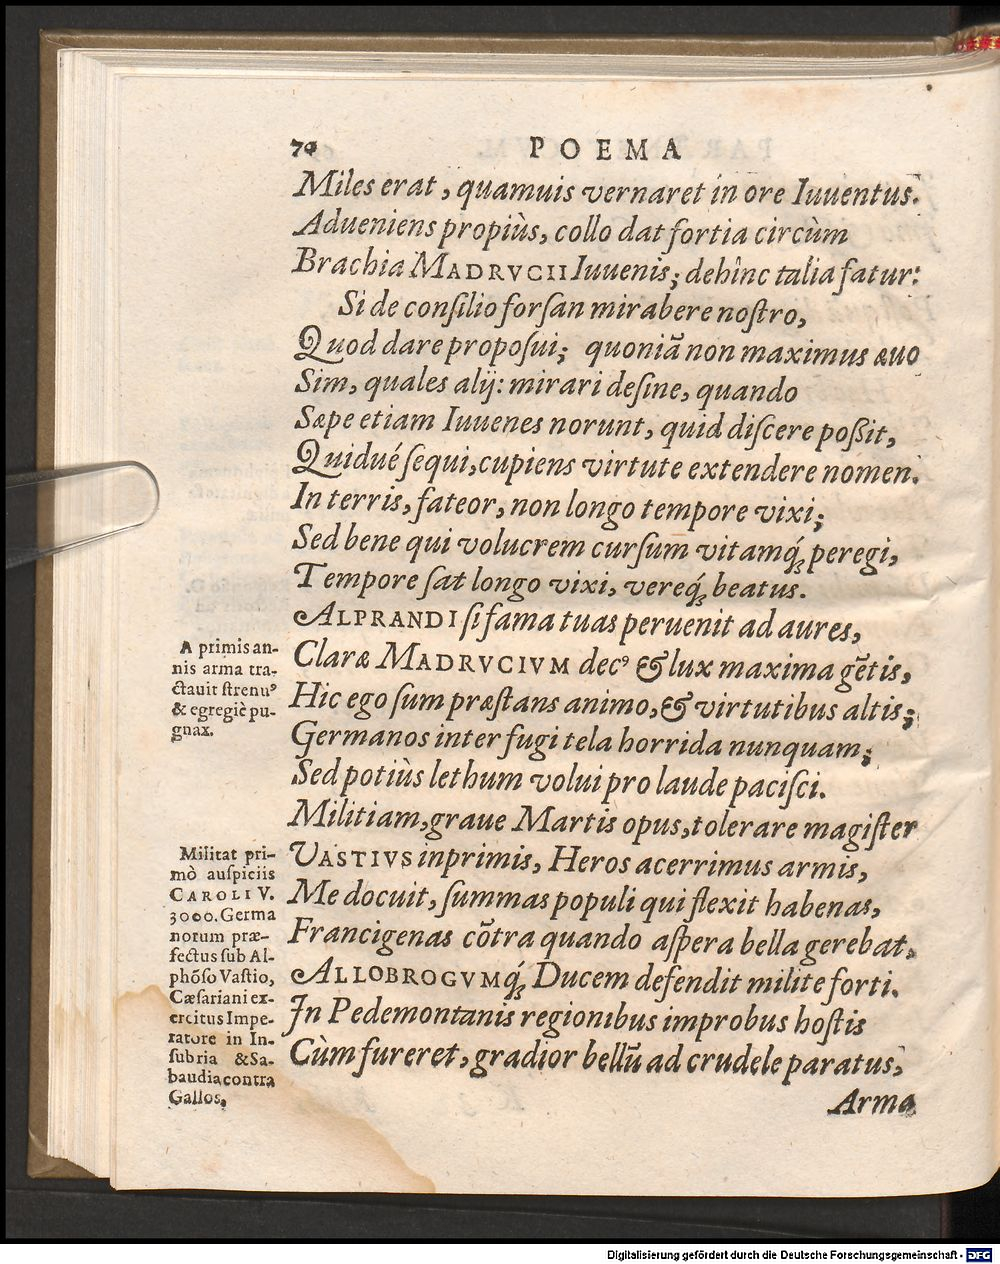 70 POEMA
Miles erat, quamuis vernaret in ore Iuuentus.
Adueniens propiùs, collo dat fortia circùm
Brachia MADRVCII Iuuenis; dehînc talia fatur:
Si de consilio forsan mirabere nostro,
Quod dare proposui; quoniã non maximus æuo
Sim, quales alij: mirari desine, quando
Sæpe etiam Iuuenes norunt, quid discere poßit,
Quidué sequi, cupiens virtute extendere nomen.
In terris, fateor, non longo tempore vixi;
Sed bene qui volucrem cursum vitamq́; peregi,
Tempore sat longo vixi, vereq́; beatus.
ALPRANDI si fama tuas peruenit ad aures,
Claræ MADRVCIVM decꝰ & lux maxima gẽtis,
Hic ego sum præstans animo, & virtutibus altis;
Germanos inter fugi tela horrida nunquam;
Sed potiùs lethum volui pro laude pacisci.
Militiam, graue Martis opus, tolerare magister
VASTIVS inprimis, Heros acerrimus armis,
Me docuit, summas populi qui flexit habenas,
Francigenas cõtra quando aspera bella gerebat,
ALLOBROGVMq́; Ducem defendit milite forti.
In Pedemontanis regionibus improbus hostis
Cùm fureret, gradior bellũ ad crudele paratus;
Arma
A primis an-
nis arma tra-
ctauit strenuꝰ
& egregiè pu-
gnax.
Militat pri-
mò auspiciis
CAROLI V.
3000. Germa
norum præ-
fectus sub Al-
phõso Vastio,
Cæsariani ex-
ercitus Impe-
ratore in In-
subria & Sa-
baudia contra
Gallos.
Digitalisierung gefördert durch die Deutsche Forschungsgemeinschaft - DFG